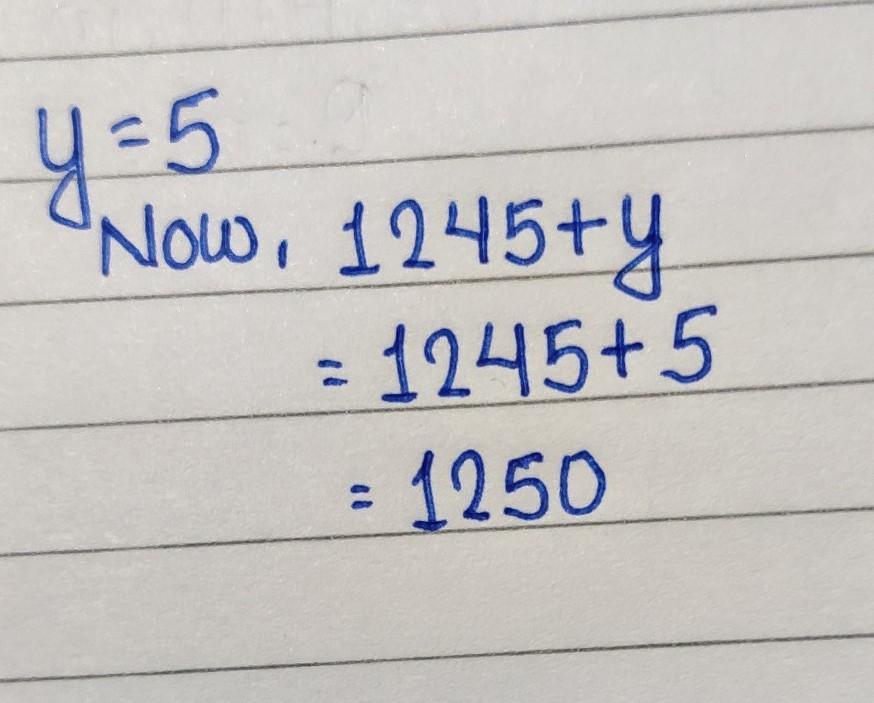 y=5
Now, 1245+y
= 1245+5
= 1250